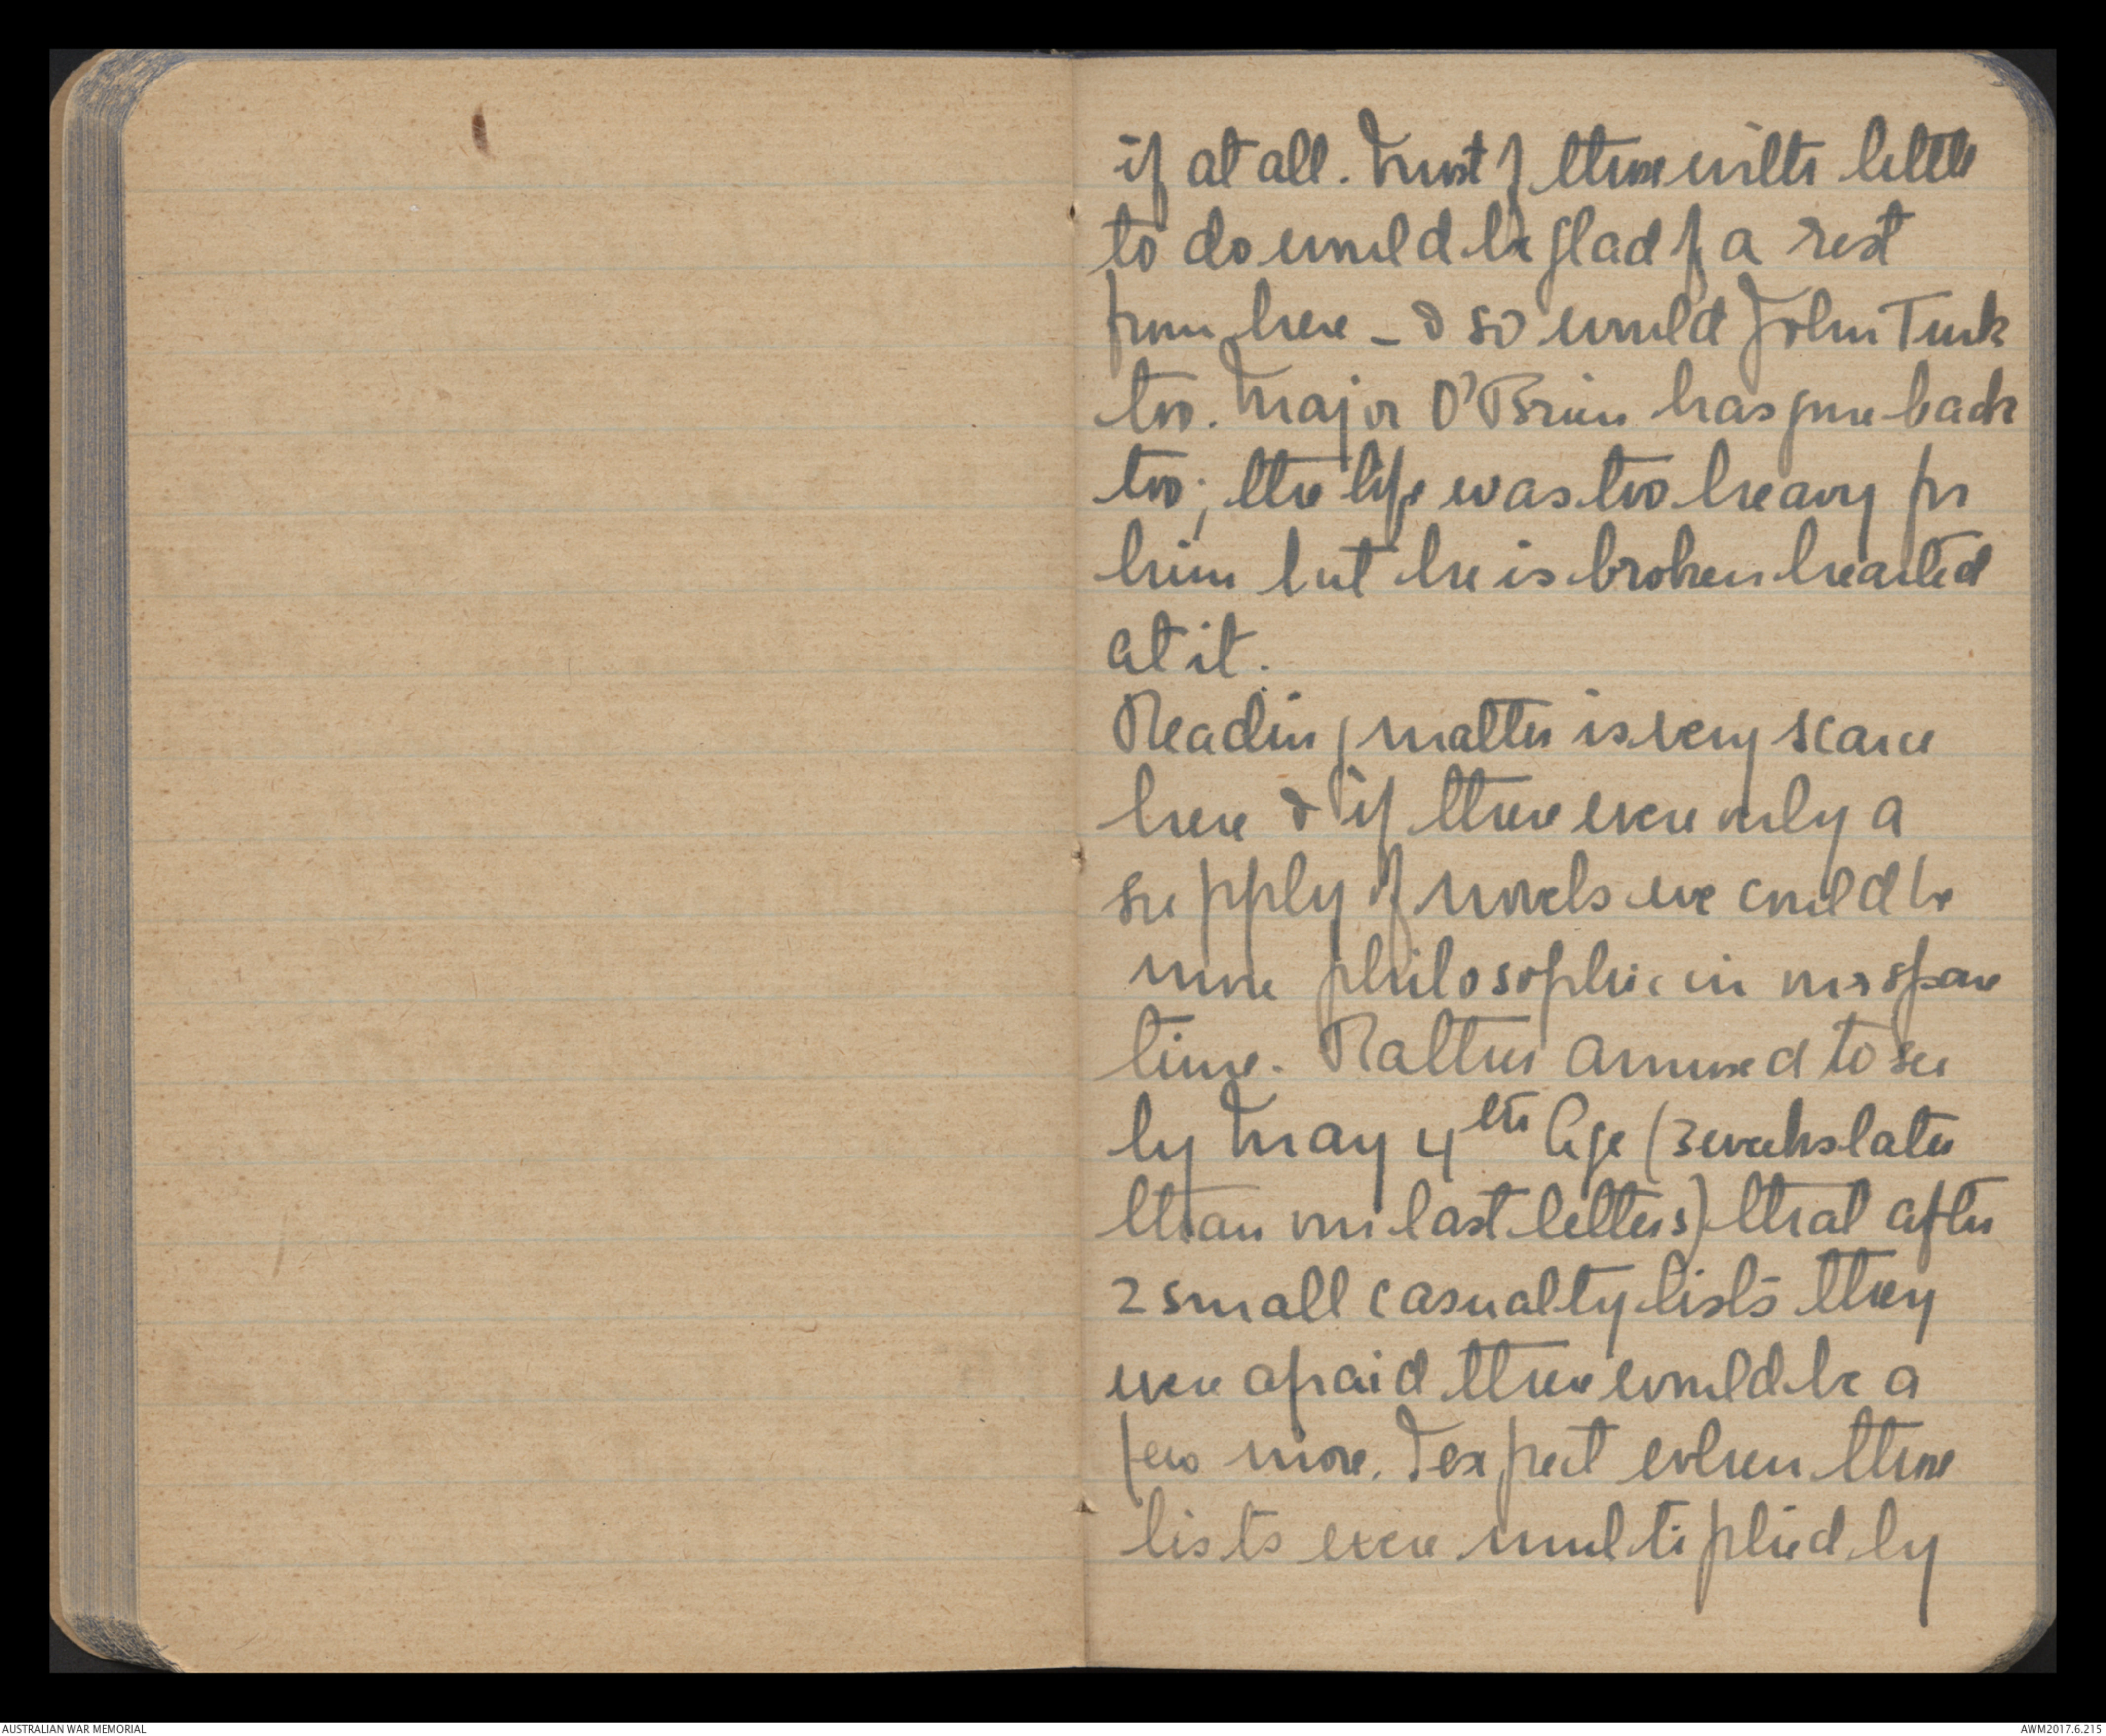 if at all. Most of those with little
to do would be glad of a rest
from here _ & so would John Turk
too. Major O'Brien has gone back
too; the life was too heavy for
him but he is broken hearted
at it.
Reading matter is very scarce
here & if there were only a
supply of novels we could be
more philosophic in our spare
time. Rather amused to see
by May 4th Age (3 weeks later
than our last letters) that after
2 small casualty lists they
were afraid there would be a
few more. I expect when those
lists were multiplied by
AUSTRALIAN WAR MEMORIAL
AWM2017.6.215